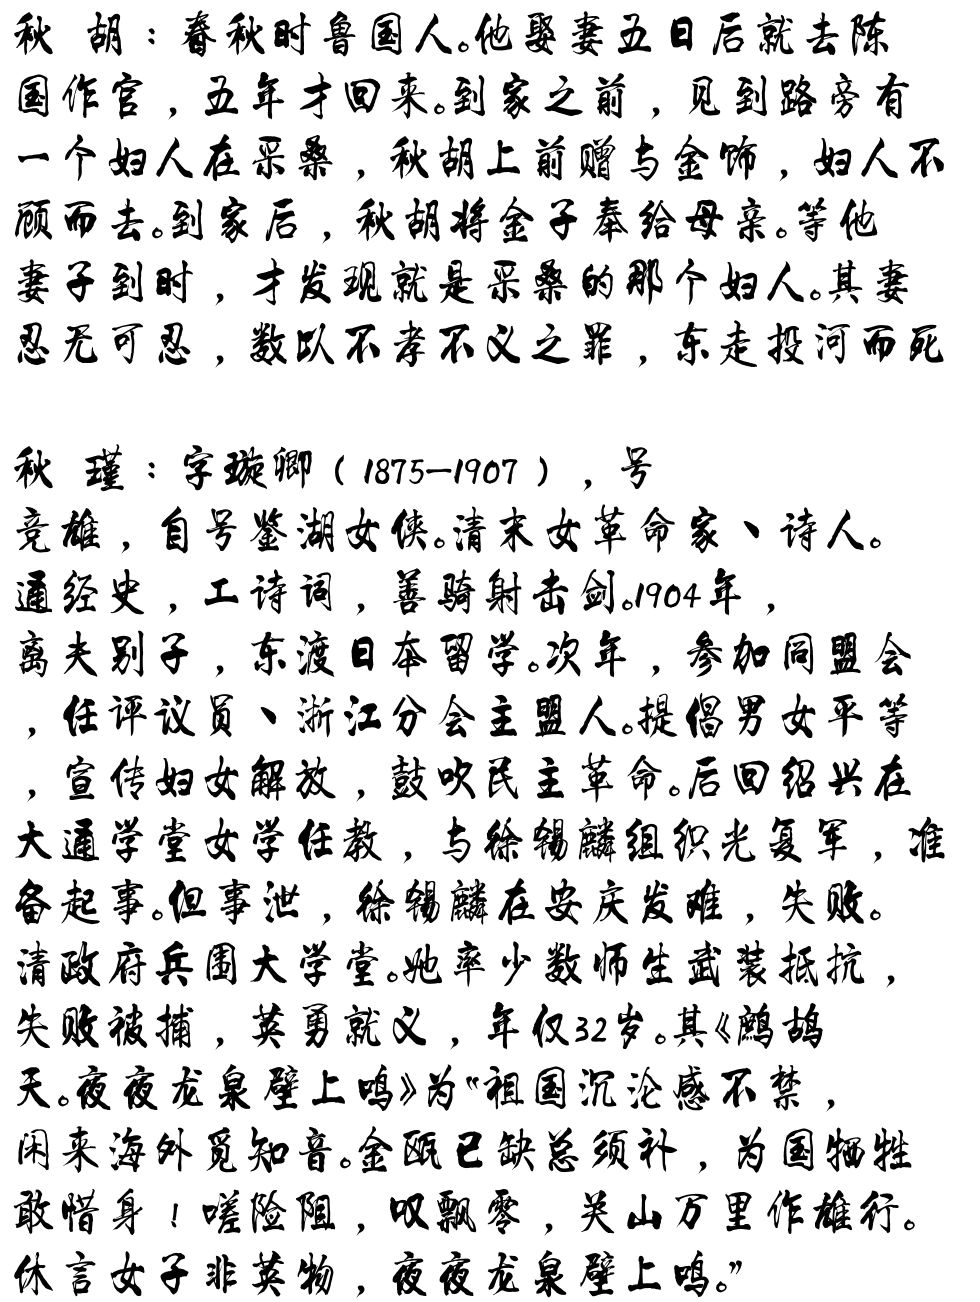 秋 胡：春秋时鲁国人。他娶妻五日后就去陈
国作官，五年才回来。到家之前，见到路旁有
一个妇人在采桑，秋胡上前赠与金饰，妇人不
顾而去。到家后，秋胡将金子奉给母亲。等他
妻子到时，才发现就是采桑的那个妇人。其妻
忍无可忍，数以不孝不义之罪，东走投河而死
秋 瑾：字璇卿（1875—1907），号
竞雄，自号鉴湖女侠。清末女革命家、诗人。
通经史，工诗词，善骑射击剑。1904年，
离夫别子，东渡日本留学。次年，参加同盟会
，任评议员、浙江分会主盟人。提倡男女平等
，宣传妇女解放，鼓吹民主革命。后回绍兴在
大通学堂女学任教，与徐锡麟组织光复军，准
备起事。但事泄，徐锡麟在安庆发难，失败。
清政府兵围大学堂。她率少数师生武装抵抗，
失败被捕，英勇就义，年仅32岁。其《鹧鸪
天。夜夜龙泉壁上鸣》为“祖国沉沦感不禁，
闲来海外觅知音。金瓯已缺总须补，为国牺牲
敢惜身！嗟险阻，叹飘零，关山万里作雄行。
休言女子非英物，夜夜龙泉壁上鸣。”